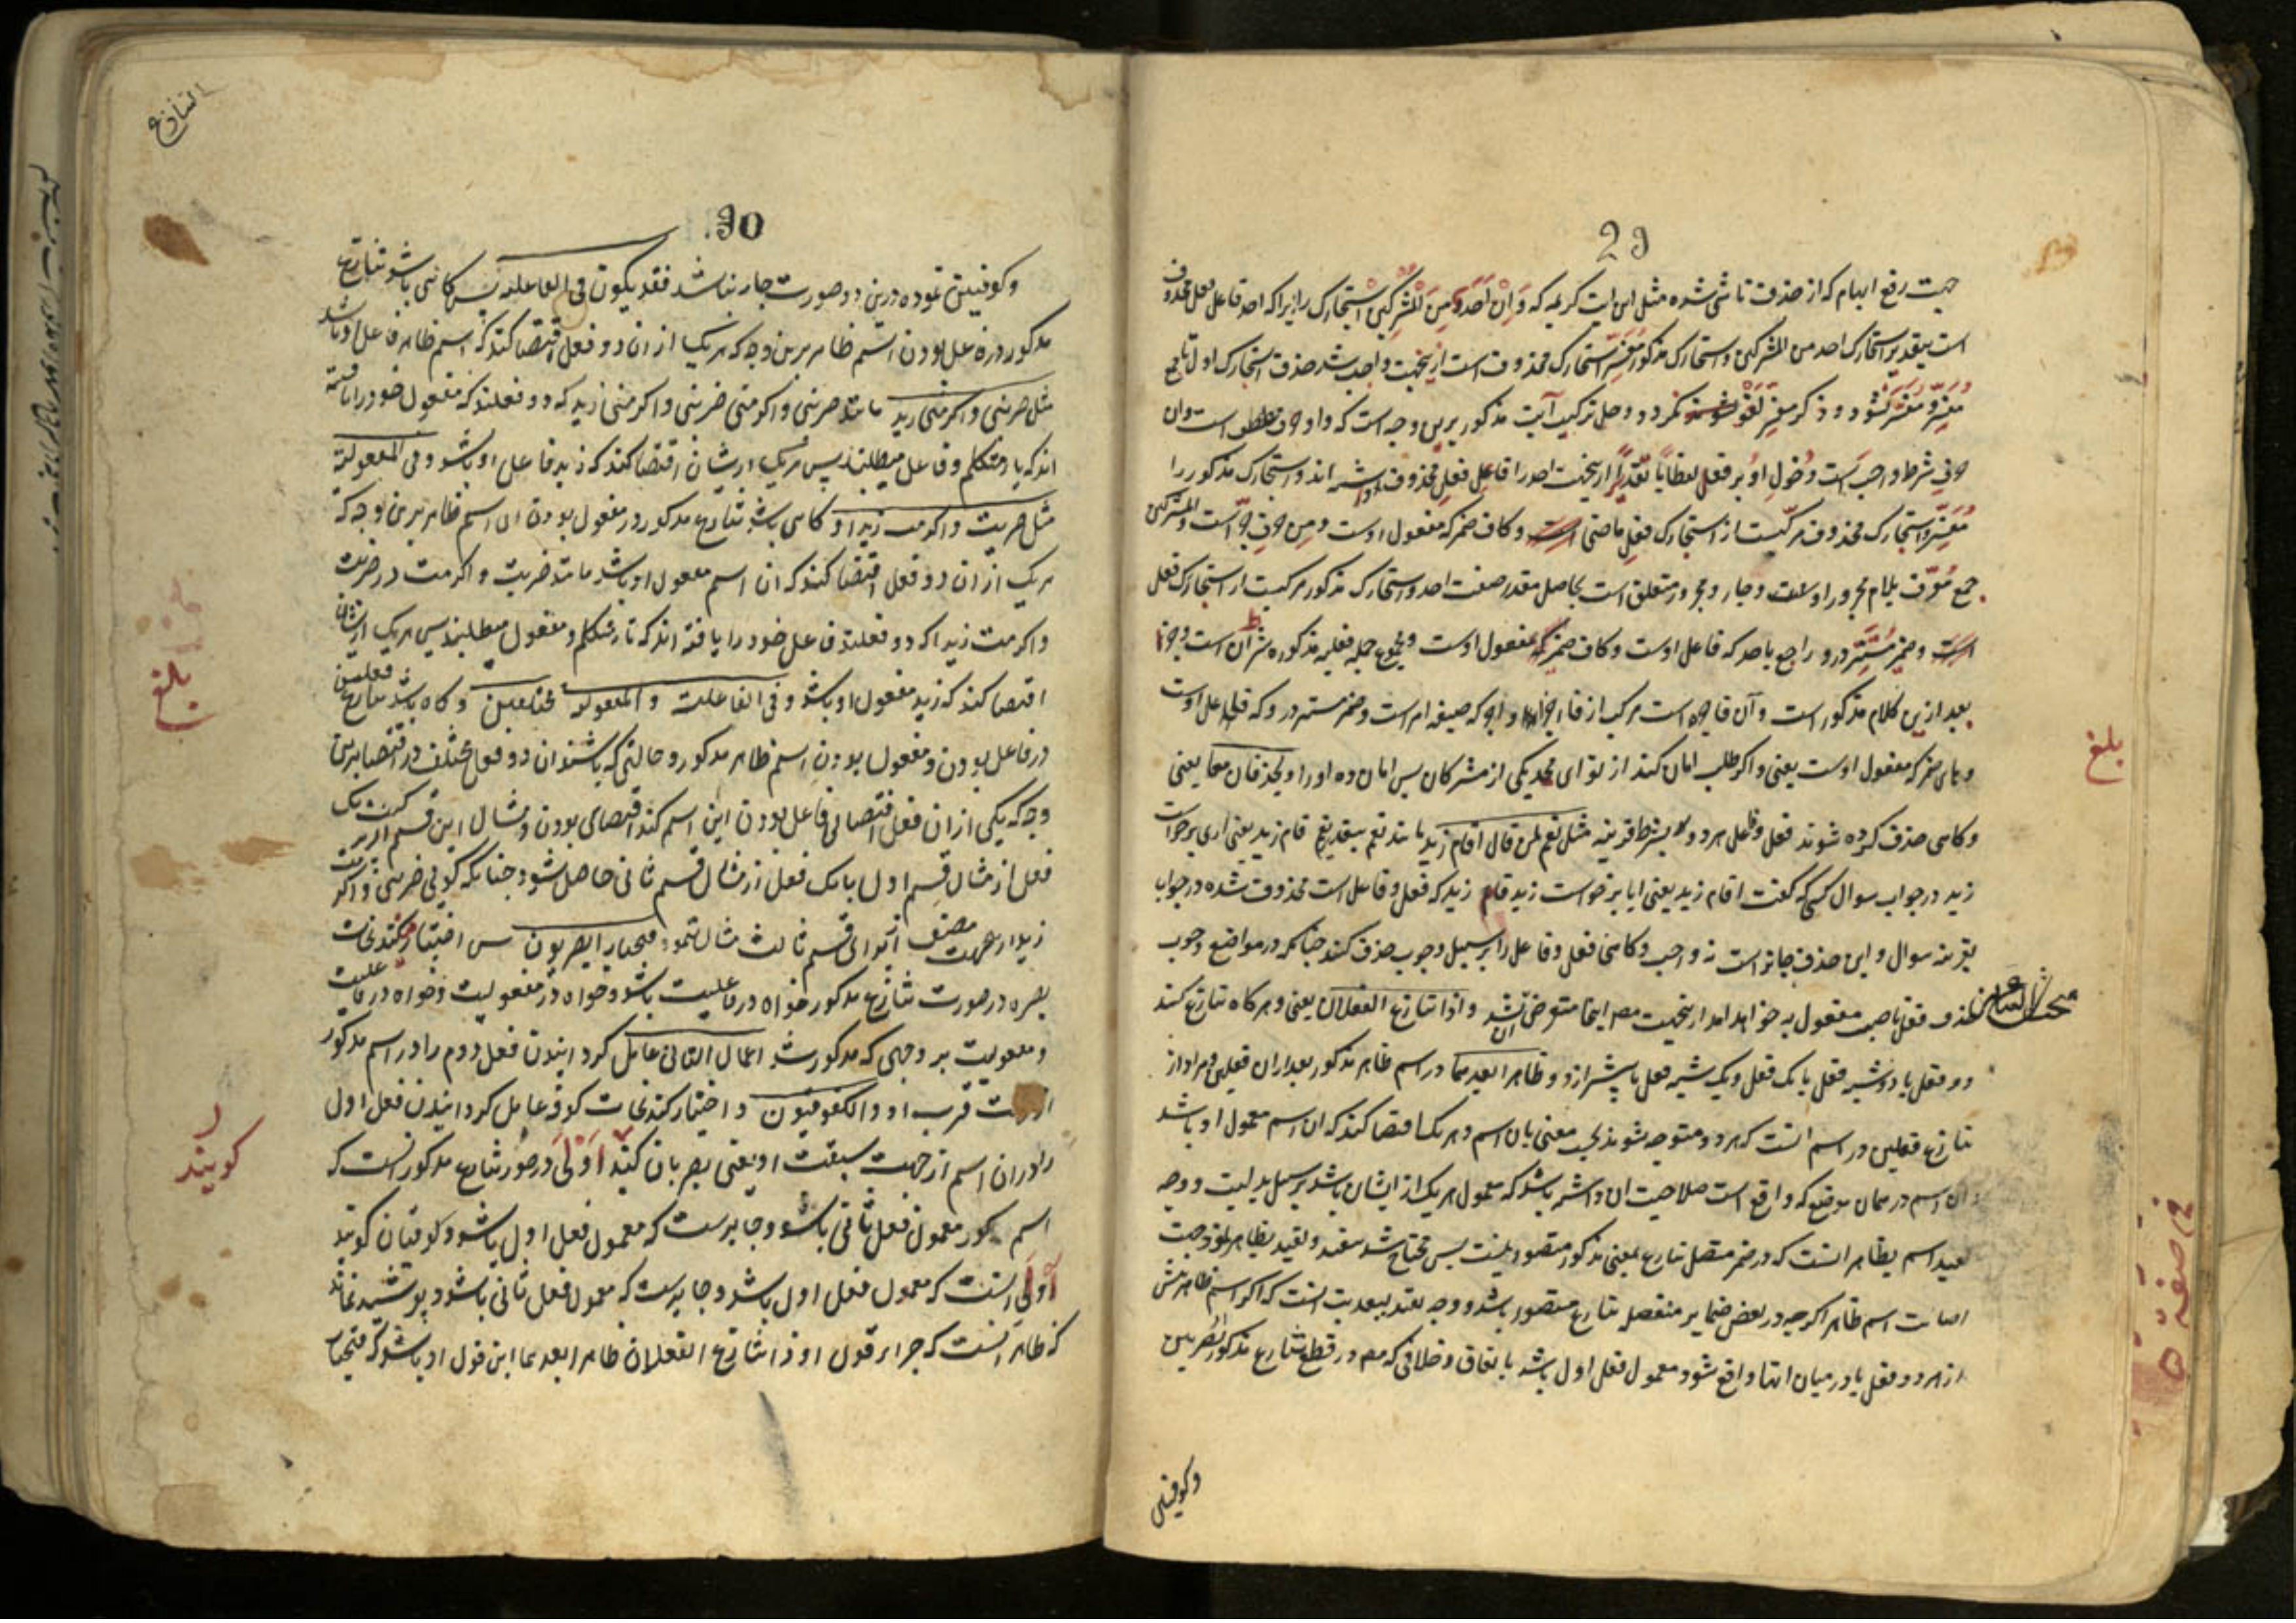 29
جهت رفع ابهام که از حذف ناشی شده مثل این آیت کریمه که وَاِنْ اَحَدٌ مِنَ الْمُشْرِکِینَ اسْتَجَارَکَ زیرا که احد فاعل فعل محذوف
است بتقدیر استجارک احد من المشرکین و استجارک مذکور مُفَسِّر استجارک محذوف است ازینجهت واجب شد حذف استجارک اول تا جمع
مُفَسِّر و مُفَسَّر نشود و ذکر مفسِّر لَغْو نکردد و حل ترکیب آیت مذکور برین وجه است که واو حرف عطف است و ان
حرف شرط و واجب است دُخولِ او بر فعل لفظًا یا تقدیرًا ازینجهت احد را فاعل فعل محذوف داشته اند و استجارک مذکور را
مُفَسِّر و استجارک محذوف مرکبست از استجارک فعل ماضی و کاف ضمیر که مفعول اوست و مِن حرف جر است و المشرکین
جمع مُعرّف بلام مجرور اوست و جار و مجرور متعلق است بحاصل مقدر صفت احد و استجارک مذکور مرکبست از استجارک فعل
و ضمیر مُستَتِر درو راجع باحد که فاعل اوست و کاف ضمیر که مفعول اوست و مجموع جمله فعلیه مذکوره شرط آن است و جزا
بعد ازین کلام مذکور است و آن فاجره است مرکب از فاء جزا و اجر که صیغه امر است و ضمیر مستتر درو که فاعل اوست
و های ضمیر که مفعول اوست یعنی و اکر طلب امان کند از تو ای محمد یکی از مشرکان پس امان ده او را و یحذفان معا یعنی
و کاهی حذف کرده شوند فعل و فاعل هر دو بشرط قرینه مثل نعم لمن قال اقام زید مانند نعم بتقدیر نعم قام زید یعنی آری برخواست
زید در جواب سوال کسی که کفت اقام زید یعنی ایا برخواست زید قام زید که فعل و فاعل است محذوف شده در جواب
بقرینه سوال و این حذف جائز است نه واجب و کاهی فعل و فاعل را بر سبیل وجوب حذف کنند چنانکه در مواضع وجوب
حذف فعل ناصب مفعول به خواهد امد ازینجهت مصـ اینجا متعرض ان نشد و اذا تنازع الفعلان یعنی و هر کاه تنازع کنند
دو فعل یا دو شبه فعل یا یک فعل و یک شبه فعل یا پیشتر از دو ظاهرا بعدهما در اسم ظاهر مذکور بعد از ان فعلین و مراد از
تنازع فعلین در اسم انست که هر دو متوجه شوند بحسب معنی بان اسم و هر یک اقتضا کند که ان اسم معمول او باشد
و ان اسم در همان موضع که واقع است صلاحیت ان داشته باشد که معمول هر یک از ایشان باشد بر سبیل بدلیت و وجه
تقیید اسم بظاهر انست که در ضمیر متصل تنازع بمعنی مذکور متصور نیست پس محتاج شد بتقیید و تقیید بظاهر نمود جهت
اصالت اسم ظاهر اکرچه در بعض ضمایر منفصل تنازع متصور باشد و وجه تقیید ببعدیت انست که اکر اسم ظاهر پیش
از هر دو فعل یا در میان انها واقع شود معمول فعل اول باشد باتفاق و خلافی که مصـ در قطع تنازع مذکور بصریین
وکوفیین
بلغ
30
وکوفیین نموده درین دو صورت جار نباشد فقد یکون فی الفاعلیة پس کاهی باشد تنازع
مذکور در فاعل بودن اسم ظاهر برین وجه که هر یک از ان دو فعل اقتضا کند که اسم ظاهر فاعل او باشد
مثل ضربنی و اکرمنی زید مانند ضربنی و اکرمنی ضربنی و اکرمنی زید که دو فعلند که مفعول خود را یافته
اند که یاء متکلم و فاعل میطلبند پس هر یک از ایشان اقتضا کند که زید فاعل او باشد و فی المفعولیة
مثل ضربت و اکرمت زیدا و کاهی باشد تنازع مذکور در مفعول بودن ان اسم ظاهر برین وجه که
هر یک از ان دو فعل اقتضا کند که ان اسم مفعول او باشد مانند ضربت و اکرمت در ضربت
و اکرمت زیدا که دو فعلند فاعل خود را یافته اند که تاء متکلم و مفعول میطلبند پس هر یک از ایشان
اقتضا کند که زید مفعول او باشد و فی الفاعلیة و المفعولیة مختلفین و کاه باشد تنازع فعلین
در فاعل بودن و مفعول بودن اسم ظاهر مذکور و حالتی که باشند ان دو فعل مختلف در اقتضا برین
وجه که یکی از ان فعل اقتضای فاعل بودن این اسم کند اقتضای بودن و مثال این قسم از ترکیب یک
فعل از مثال قسم اول با یک فعل از مثال قسم ثانی حاصل شود چنانکه کوئی ضربنی و اکرمت
زیدا از جهت مصنف از برای قسم ثالث مثال ننمود فیختار البصریون پس اختیار کنند نحات
بصره در صورت تنازع مذکور خواه در فاعلیت باشد و خواه در مفعولیت و خواه در فاعلیت
و مفعولیت بر وجهی که مذکور شد اعمال الثانی عامل کردانیدن فعل دوم را در اسم مذکور
از جهت قرب او و الکوفیون و اختیار کنند نحات کوفه عامل کردانیدن فعل اول
را در ان اسم از جهت سبقت او یعنی بصریان کویند اَوْلَی در صورت تنازع مذکور انست که
اسم مذکور معمول فعل ثانی باشد و جایزست که معمول فعل اول باشد و کوفیان کویند
اَوْلَی انست که معمول فعل اول باشد و جایزست که معمول فعل ثانی باشد و پوشیده نماند
که ظاهر انست که جزاء قول او اذا تنازع الفعلان ظاهرا بعدهما این قول او باشد که فیختار
بلغ
کویند